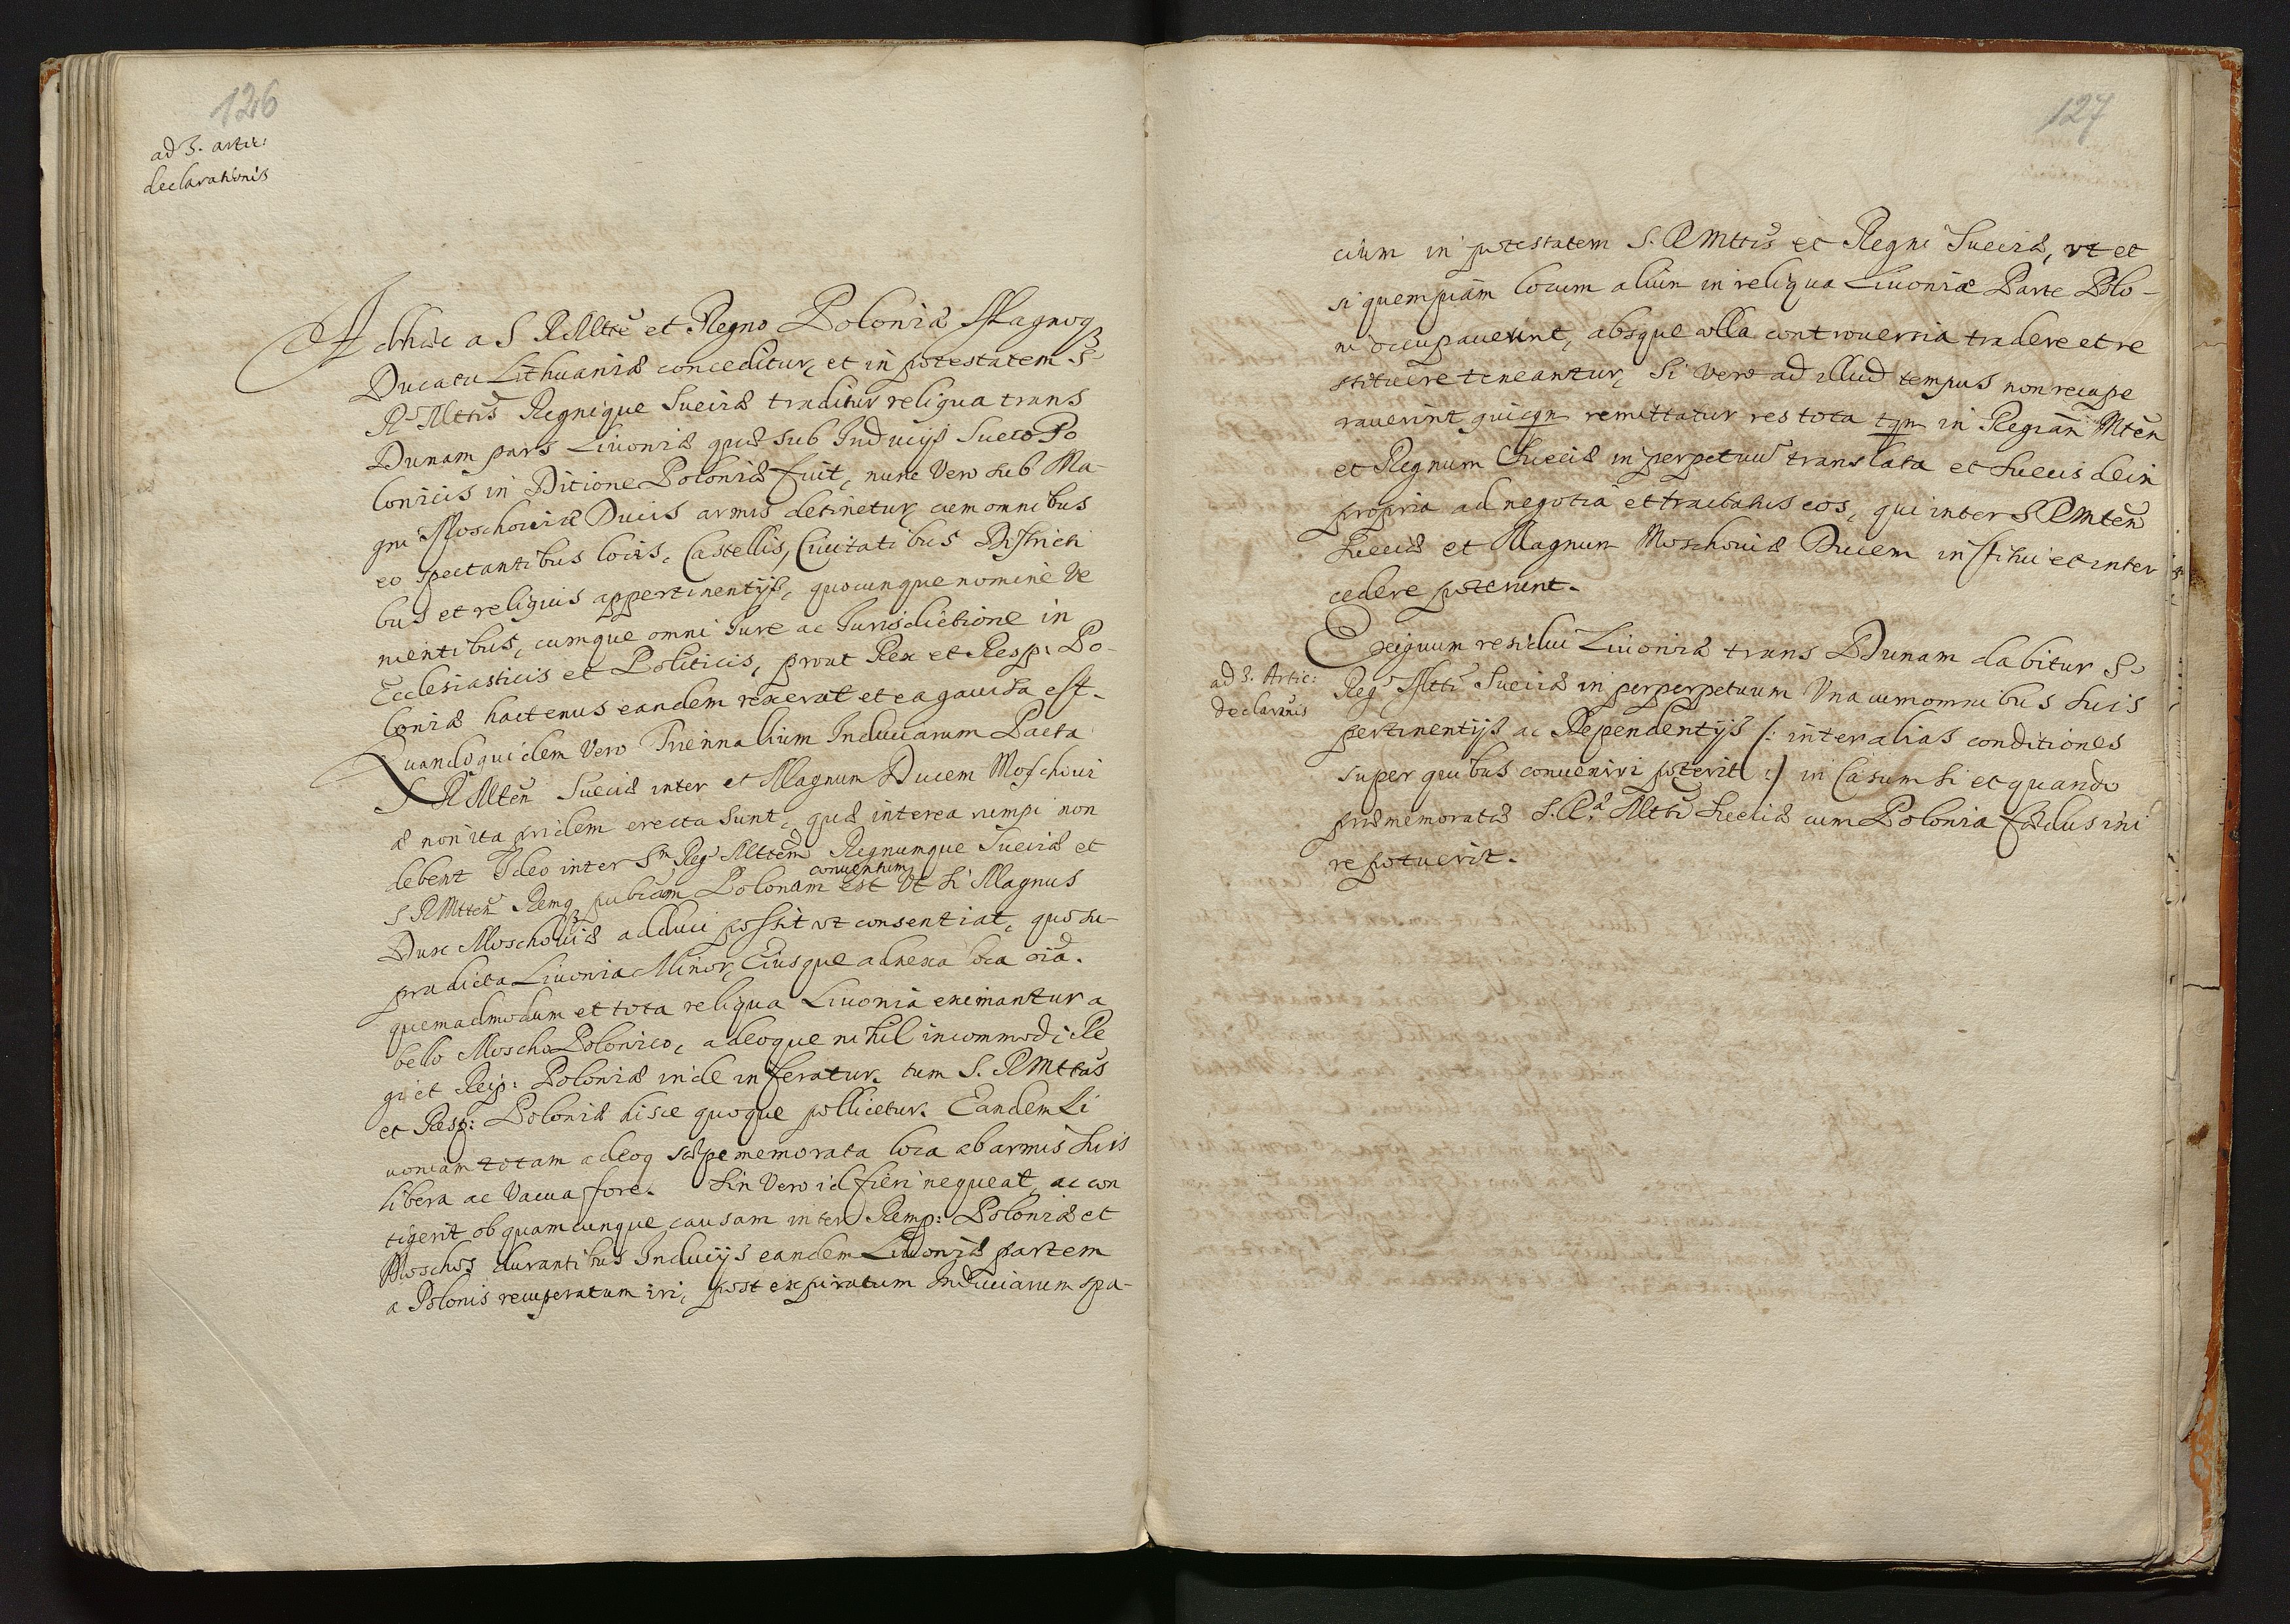 126
ad 3. artic:
declarationis
Adhæc a S RMtte et Regno Poloniæ Magnoq3
Ducatu Lithuaniæ conceditur, et in potestatem S
Rs Mttis Regnique Sueciæ traditur reliqua trans
Dunam pars Livoniæ quæ sub Inducijs Sueco Po
lonicis in Ditione Poloniæ fuit, nunc Vero sub Ma-
gni Moschoviæ Ducis armis detinetur, cum omnibus
eo spectantibus locis, Castellis, Civitatibus Districti
bus et reliquis appertinentijs, quocunque nomine Ve
nientibus, cumque omni Jure ac Jurisdictione in
Ecclesiasticis et Politicis, prout Rex et Resp: Po-
loniæ hactenus eandem rexerat et ea gavisa est.
Quandoquidem Vero Triennalium Induciarum Pacta
S RMtten Sueciæ inter et Magnum Ducem Moschovi
æ non ita pridem erecta sunt, quæ interea rumpi non
debent Ideo inter Sm Reg Mttem Regnumque Sueciæ et
conventum
S RMtten Remq3 pubicam Polonam est Vt si Magnus
Dux Moschoviæ adduci possit vt consentiat, quo su-
pradicta Livonia Minor, Ejusque adnexa loca oia.
quemadmodum et tota reliqua Livonia eximantur a
bello Moscho Polonico, adeoque nihil incommodi Re
gi et Reip: Poloniæ inde inferatur. tum S. RMttas
et Resp: Poloniæ hisce quoque pollicetur. Eandem Li
voniam totam adeoq sæpememorata loca ab armis suis
libera ac Vacua fore. Sin Vero id fieri nequeat, ac con
tigerit ob quamcunque causam inter Remp: Poloniæ et
Moschos durantibus Inducijs eandem Livoniæ partem
a Polonis recuperatum iri, post expiratum Induciarum spa-
127
cium in potestatem S. RMttis et Regni Sueciæ, vt et
si quempiam locum alium in reliqua Livoniæ Parte Polo-
ni occupaverint, absque ulla controversia tradere et re
stituere teneantur, Si Vero ad illud tempus non recupe
raverint quicqn remittatur res tota tqm in Regiam Mtem
et Regnum Sueciæ in perpetuum translata et Suecis dein
propria ad negotia et tractatus eos, qui inter S RMtem
Sueciæ et Magnum Moschoviæ Ducem institui et inter
cedere poterunt.
ad 3. Artic:
declarnis
Exiguum residui Livoniæ trans Dunam dabitur S
Reg Mtti Sueciæ in perperpetuum Vna cum omnibus suis
pertinentijs ac Dependentijs /: inter alias conditiones
super quibus conveniri poterit :/ in Casum si et quando
præmemoratæ S. Ræ Mtti Sueciæ cum Polonia fœdus ini
re potuerit.